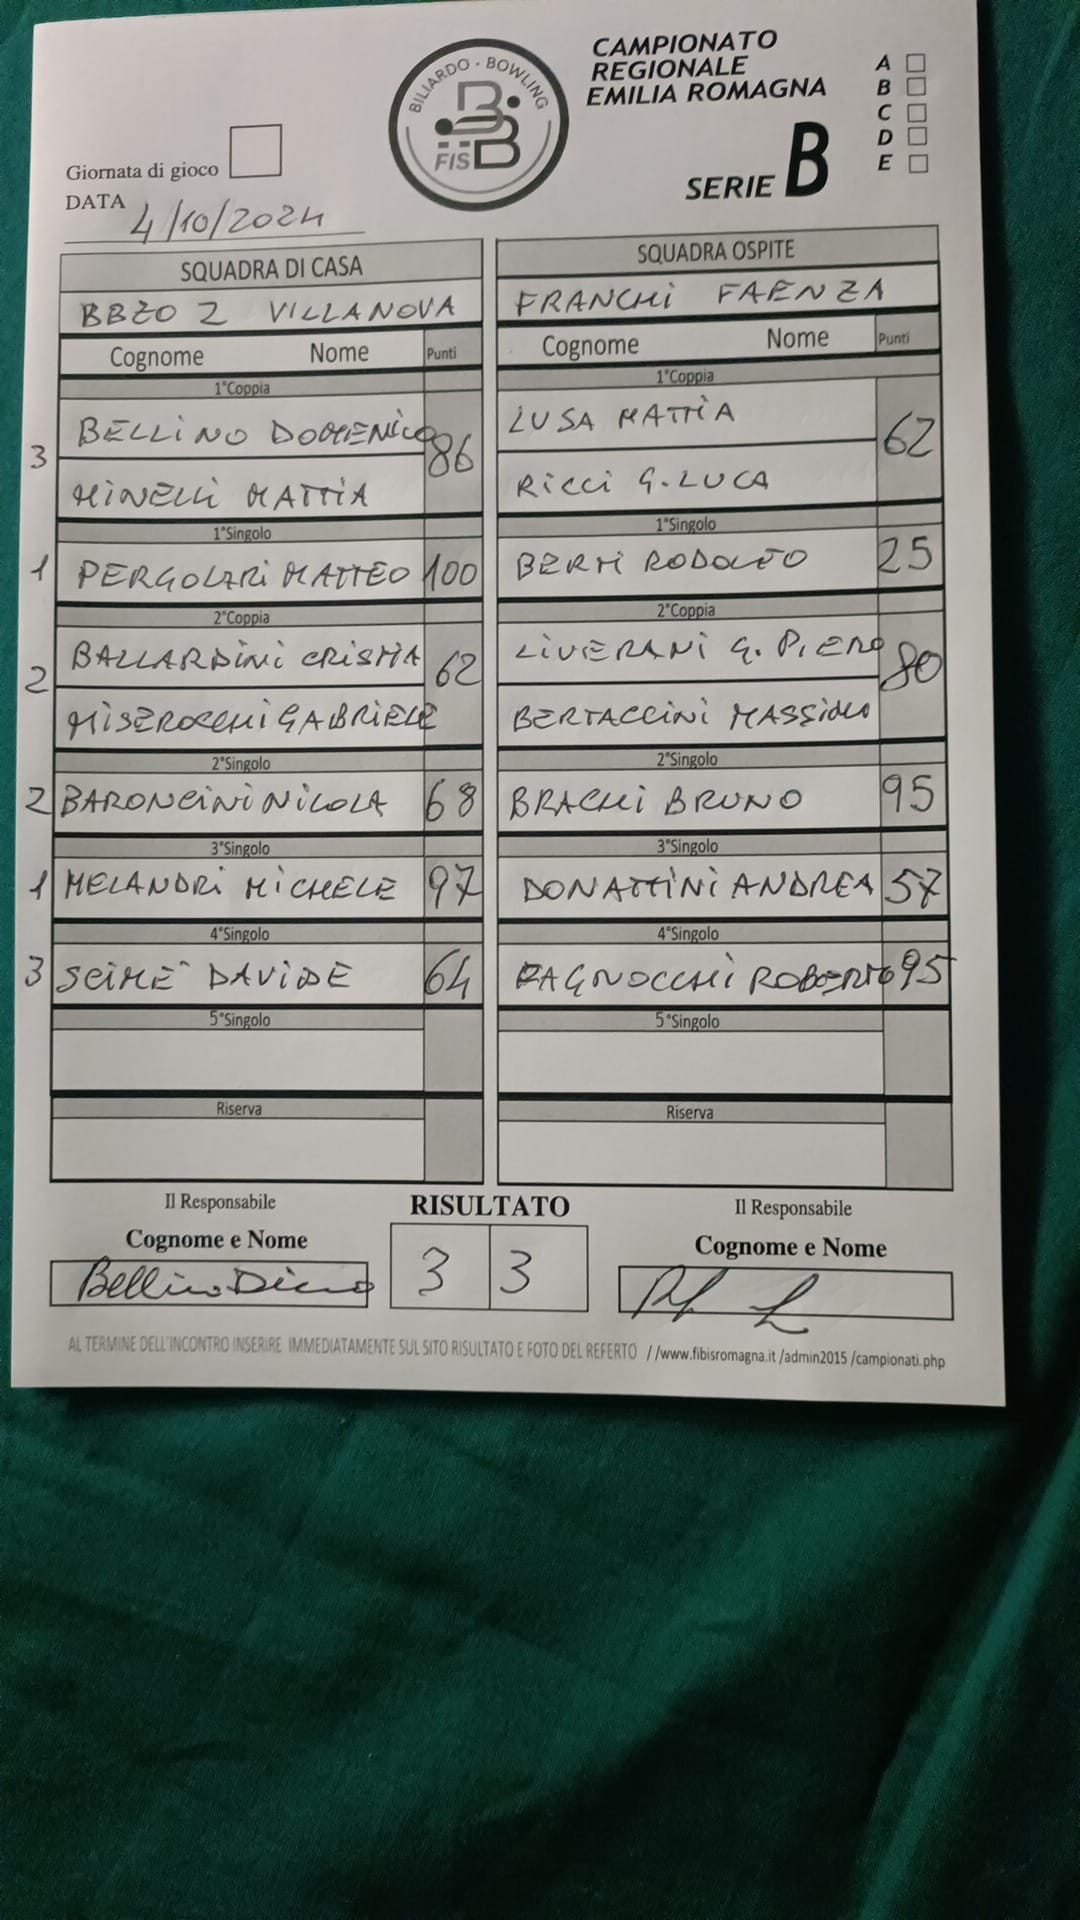 BILIARDO · BOWLING
FISBB
CAMPIONATO
REGIONALE
EMILIA ROMAGNA
SERIE B
A
B
C
D
E
Giornata di gioco
DATA 4/10/2024
SQUADRA DI CASA
BBZO 2 VILLANOVA
Cognome Nome Punti
1°Coppia
3 BELLINO DOMENICO 86
MINELLI MATTIA
1°Singolo
1 PERGOLARI MATTEO 100
2°Coppia
2 BALLARDINI CRISTIA 62
MISEROCCHI GABRIELE
2°Singolo
2 BARONCINI NICOLA 68
3°Singolo
1 MELANDRI MICHELE 97
4°Singolo
3 SCIME' DAVIDE 64
5°Singolo
Riserva
SQUADRA OSPITE
FRANCHI FAENZA
Cognome Nome Punti
1°Coppia
LUSA MATTIA 62
RICCI G.LUCA
1°Singolo
BERTI RODOLFO 25
2°Coppia
LIVERANI G. PIERO 80
BERTACCINI MASSIMO
2°Singolo
BRACHI BRUNO 95
3°Singolo
DONATTINI ANDREA 57
4°Singolo
FAGNOCCHI ROBERTO 95
5°Singolo
Riserva
Il Responsabile
Cognome e Nome
Bellino
RISULTATO
3 3
Il Responsabile
Cognome e Nome
AL TERMINE DELL'INCONTRO INSERIRE IMMEDIATAMENTE SUL SITO RISULTATO E FOTO DEL REFERTO //www.fibisromagna.it /admin2015 /campionati.php